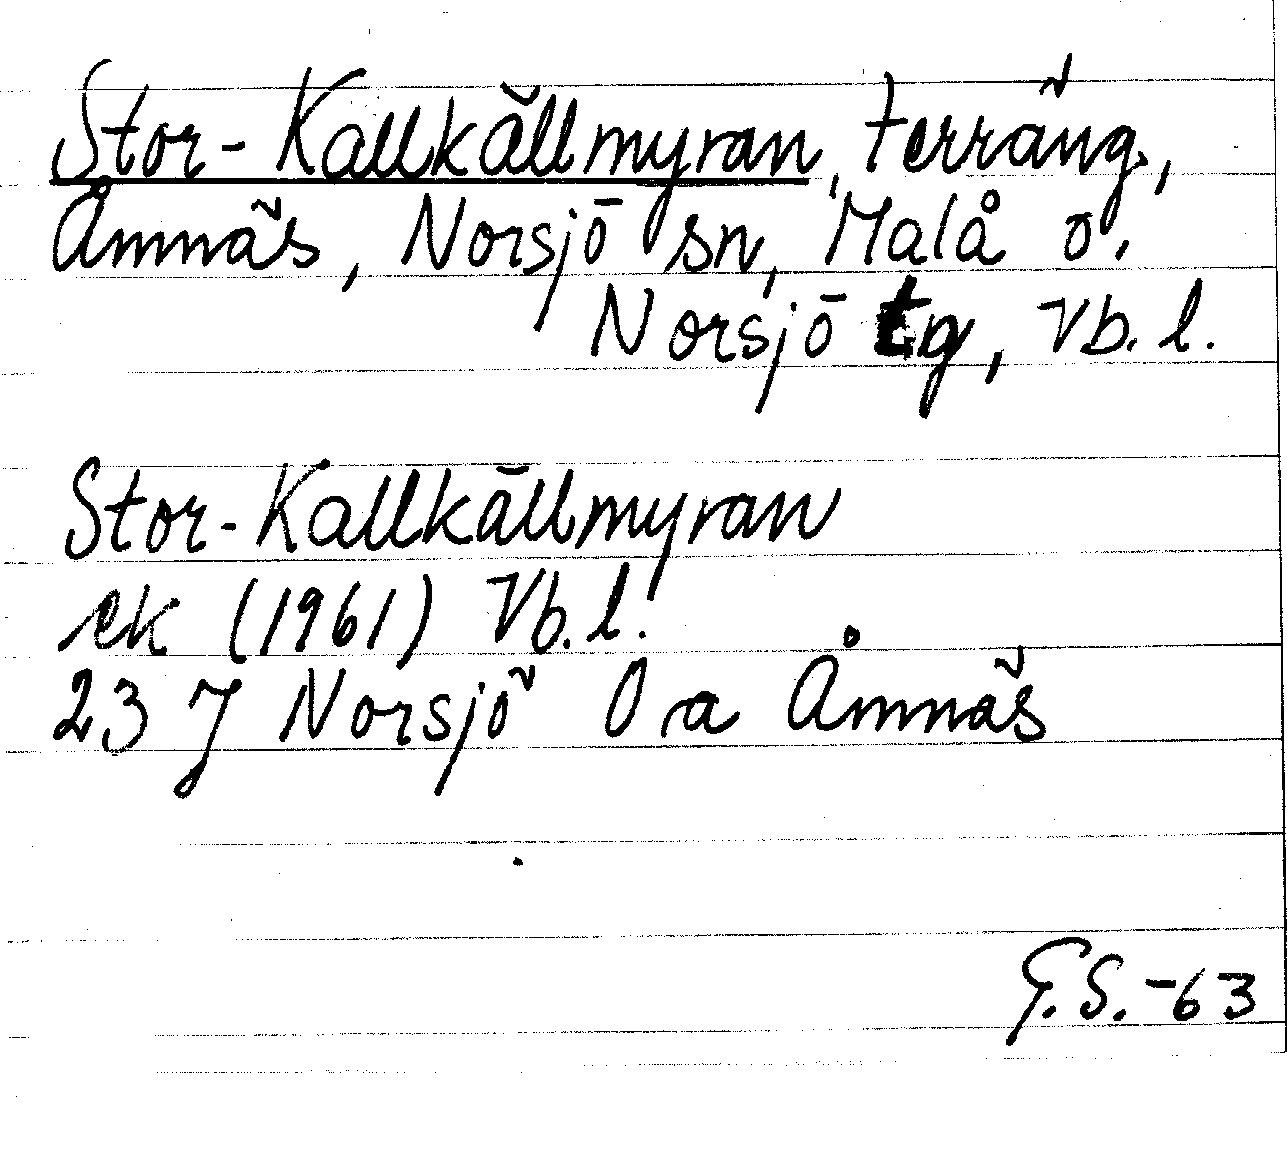 Stor-Kallkällmyran, terräng,
Åmnäs, Norsjö sn, Malå o.
Norsjö tg, Vb. l.
Stor-Kallkällmyran
ek (1961) Vb. l.
23 J Norsjö 0 a Åmnäs
G.S.-63